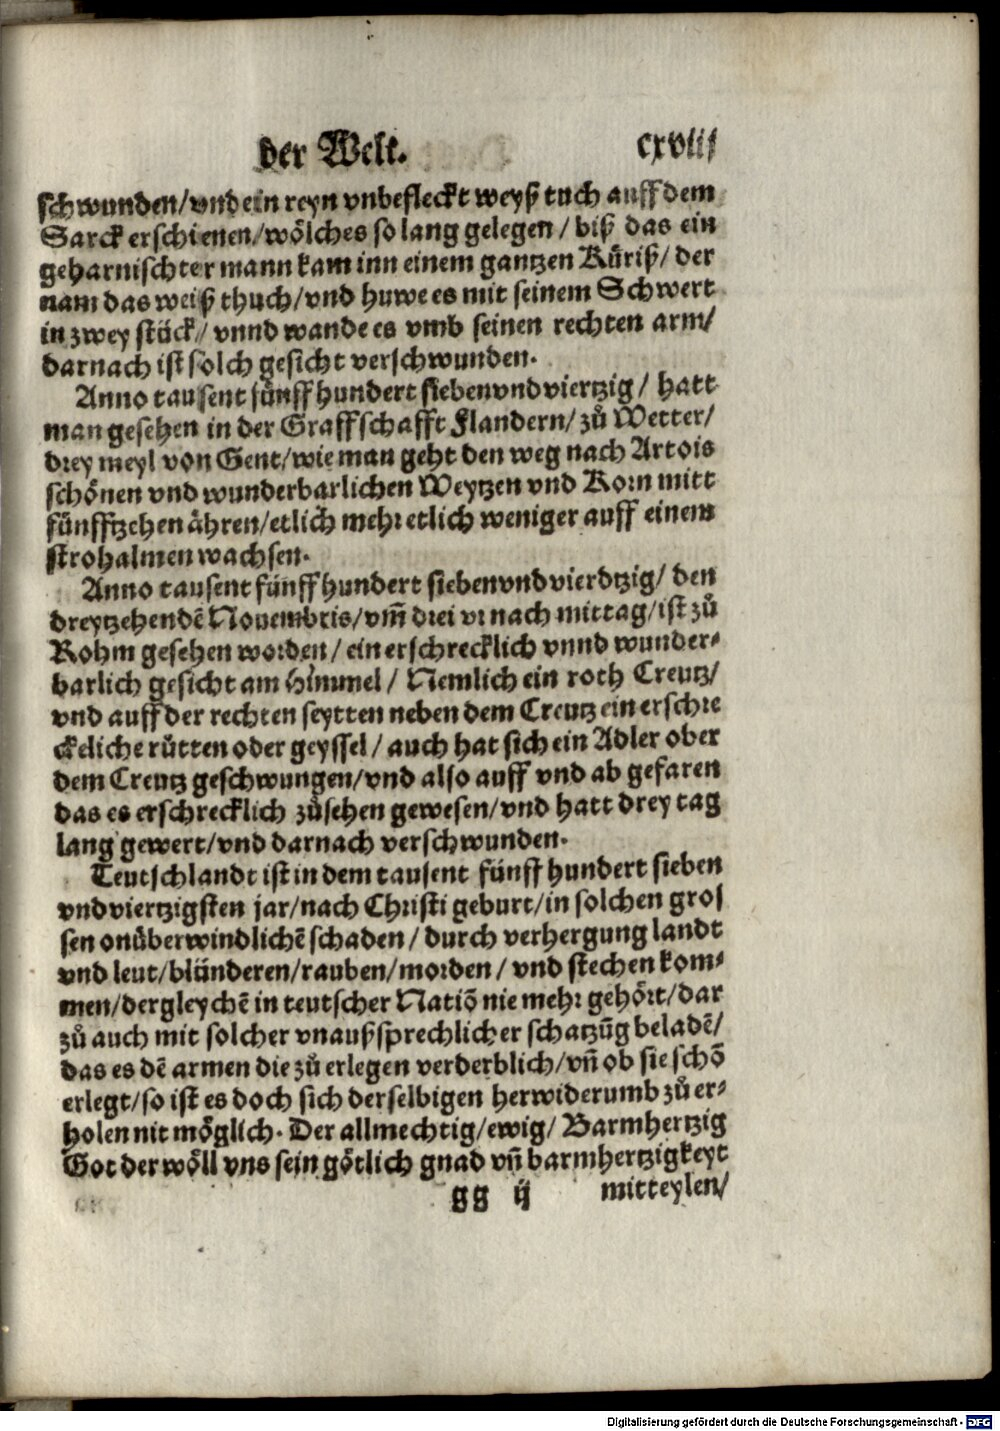 der Welt. cxviij
schwunden/vnd ein reyn vnbefleckt weyß tuch auff dem
Sarck erschienen/wölches so lang gelegen / biß das ein
geharnischter mann kam inn einem gantzen Küriß/ der
nam das weiß thuch/vnd huwe es mit seinem Schwert
in zwey stück/ vnnd wande es vmb seinen rechten arm/
darnach ist solch gesicht verschwunden.
Anno tausent fünff hundert siebenvndviertzig/ hatt
man gesehen in der Graffschafft Flandern/ zů Wetter/
drey meyl von Gent/wie man geht den weg nach Artois
schönen vnd wunderbarlichen Weytzen vnd Korn mitt
fünfftzehen ähren/etlich mehr etlich weniger auff einem
strohalmen wachsen.
Anno tausent fünff hundert siebenvndvierdtzig/ den
dreytzehendē Nouembris/vm̄ drei vr nach mittag/ist zů
Rohm gesehen worden/ ein erschrecklich vnnd wunder-
barlich gesicht am Himmel / Nemlich ein roth Creutz/
vnd auff der rechten seytten neben dem Creutz ein erschre
ckeliche rütten oder geyssel / auch hat sich ein Adler ober
dem Creutz geschwungen/vnd also auff vnd ab gefaren
das es erschrecklich zůsehen gewesen/vnd hatt drey tag
lang gewert/vnd darnach verschwunden.
Teutschlandt ist in dem tausent fünff hundert sieben
vndviertzigsten jar/nach Christi geburt/in solchen gros
sen onüberwindlichē schaden / durch verhergung landt
vnd leut/blünderen/rauben/morden / vnd stechen kom-
men/dergleychē in teutscher Natiō nie mehr gehört/dar
zů auch mit solcher vnaußsprechlicher schatzūg beladē/
das es dē armen die zů erlegen verderblich/vn̄ ob sie schō
erlegt/so ist es doch sich derselbigen herwiderumb zů er-
holen nit möglich. Der allmechtig/ewig/ Barmhertzig
Got der wöll vns sein götlich gnad vn̄ barmhertzigkeyt
gg ij mitteylen/
Digitalisierung gefördert durch die Deutsche Forschungsgemeinschaft - DFG